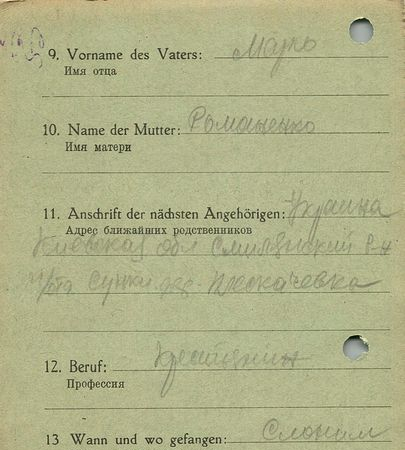 9. Vorname des Vaters: Марко
Имя отца
10. Name der Mutter: Романенко
Имя матери
11. Anschrift der nächsten Angehörigen: Украина
Адрес ближайших родственников
Киевская обл Смилянский р-н
п/от Сунки дер. Плескачевка
12. Beruf: Крестьянин
Профессия
13 Wann und wo gefangen: Слоним